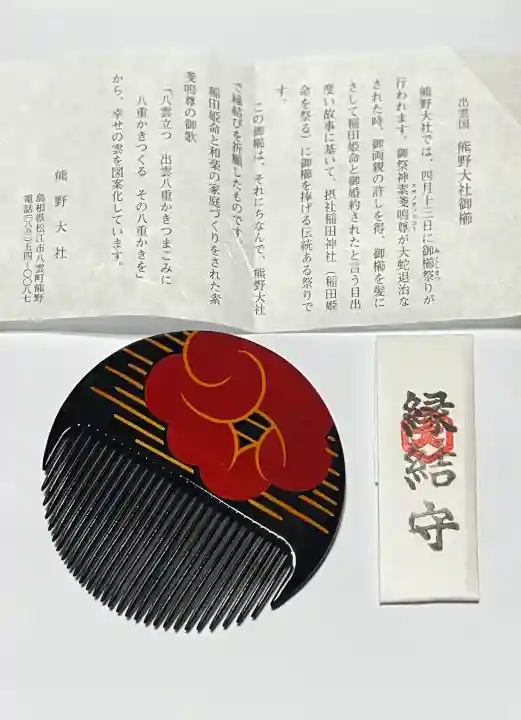 出雲国　熊野大社御櫛
熊野大社では、四月十三日に御櫛祭りが
みくしまつ
行われます。御祭神素戔嗚尊が大蛇退治な
スサノオノミコト
された時、御両親の許しを得、御櫛を髪に
さして稲田姫命と御婚約されたと言う目出
度い故事に基いて、摂社稲田神社（稲田姫
命を祭る）に御櫛を捧げる伝統ある祭りで
す。
この御櫛は、それにちなんで、熊野大社
で縁結びを祈願したものです。
稲田姫命と和楽の家庭づくりをされた素
戔嗚尊の御歌
「八雲立つ　出雲八重かきつまごみに
八重かきつくる　その八重かきを」
から、幸せの雲を図案化しています。
熊野大社
島根県松江市八雲町熊野
電話〇八五二―五四―〇〇八七
縁結守